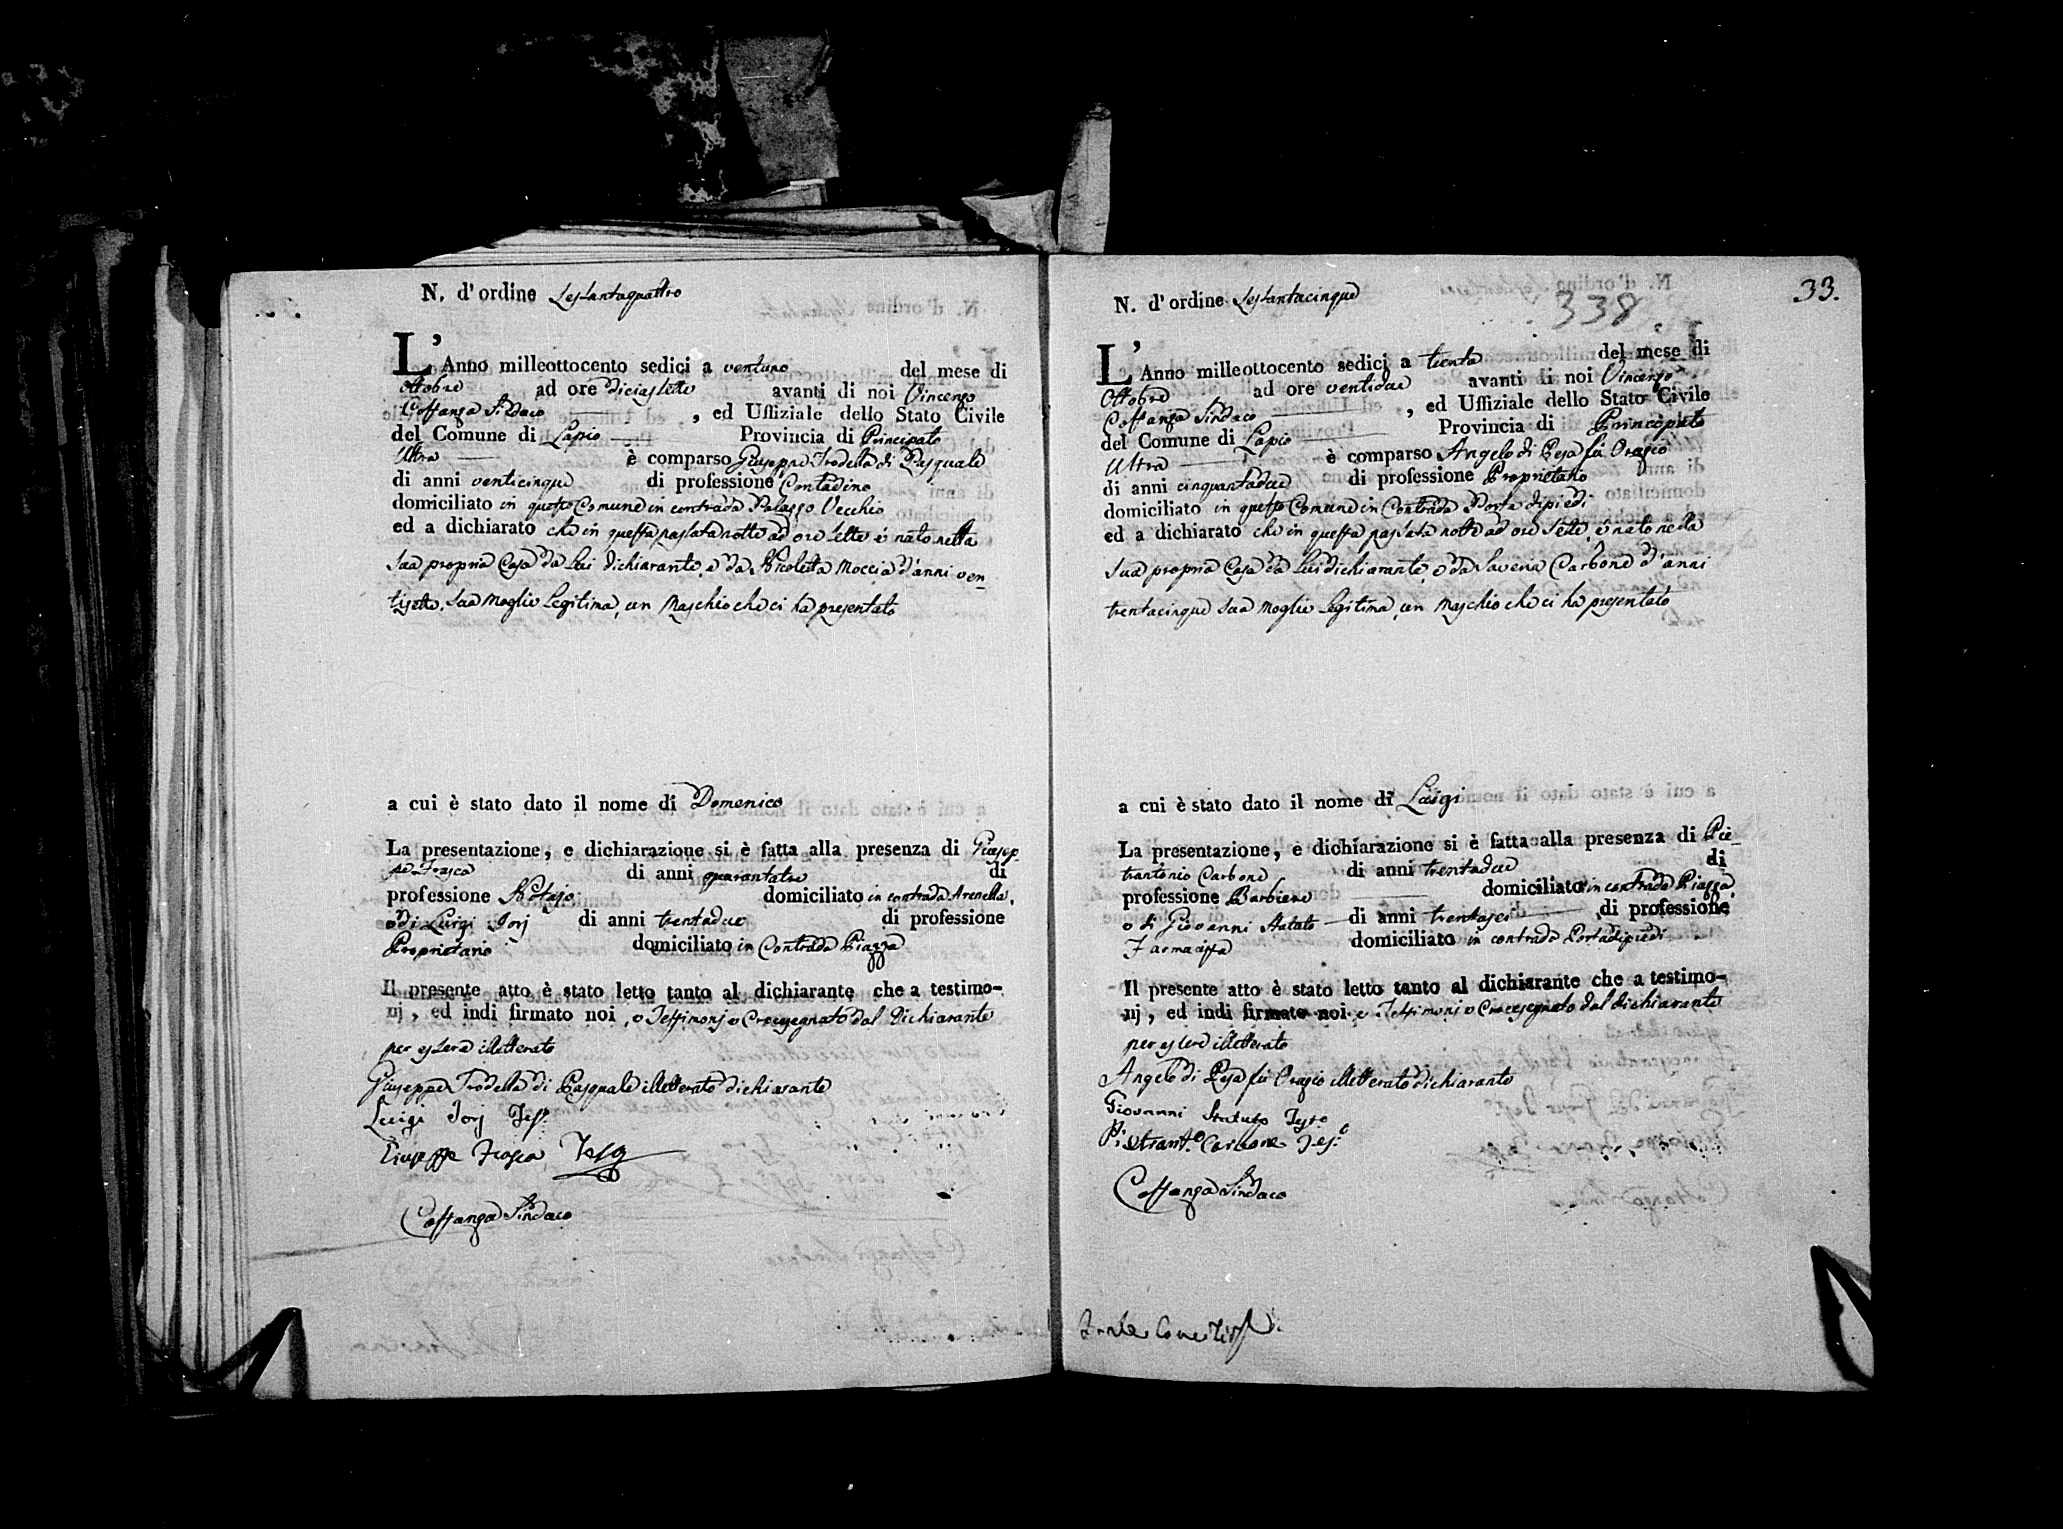 N. d'ordine Sessantaquattro
L'Anno milleottocento sedici a ventuno del mese di
Ottobre ad ore diciassette avanti di noi Vincenzo
Costanza Sindaco , ed Uffiziale dello Stato Civile
del Comune di Lapio Provincia di Principato
Ultra è comparso Giuseppe Trodella di Pasquale
di anni venticinque di professione Contadino
domiciliato in questo Comune in contrada Palazzo Vecchio
ed a dichiarato che in questa passata notte ad ore sette è nato nella
sua propria Casa da Lui dichiarante, e da Nicoletta Moccia d'anni ven-
tisette, sua Moglie Legitima, un Maschio che ci ha presentato
a cui è stato dato il nome di Domenico
La presentazione, e dichiarazione si è fatta alla presenza di Giusep
pe Frasca di anni quarantatre di
professione Notajo domiciliato in contrada Arenella,
e di Luigi Jorj di anni trentadue di professione
Proprietario domiciliato in Contrada Piazza
Il presente atto è stato letto tanto al dichiarante che a testimo-
nj, ed indi firmato noi, e Testimonj e Crocesegnato dal Dichiarante
per essere illetterato
Giuseppe Trodella di Pasquale illetterato dichiarante
Luigi Jorj Tes.
Giuseppe Frasca Teso
Costanza Sindaco
33.
N. d'ordine Sessantacinque
338
L'Anno milleottocento sedici a trenta del mese di
Ottobre ad ore ventidue avanti di noi Vincenzo
Costanza Sindaco , ed Uffiziale dello Stato Civile
del Comune di Lapio Provincia di Principato
Ultra è comparso Angelo di Pesa fu Orazio
di anni cinquantadue di professione Proprietario
domiciliato in questo Comune in Contrada Porta dipiedi
ed a dichiarato che in questa passata notte ad ore sette, è nato nella
sua propria Casa da Lui dichiarante, e da Saveria Carbone d'anni
trentacinque sua Moglie Legitima, un Maschio che ci ha presentato
a cui è stato dato il nome di Luigi
La presentazione, e dichiarazione si è fatta alla presenza di Pie
trantonio Carbone di anni trentadue di
professione Barbiere domiciliato in contrada Piazza,
e di Giovanni Statuto di anni trentasei di professione
Farmacista domiciliato in contrada Portadipiedi
Il presente atto è stato letto tanto al dichiarante che a testimo-
nj, ed indi firmato noi e Testimonj e Crocesegnato dal dichiarante
per essere illetterato
Angelo di Pesa fu Orazio illetterato dichiarante
Giovanni Statuto Testo
Pietranto Carbone Teso
Costanza Sindaco